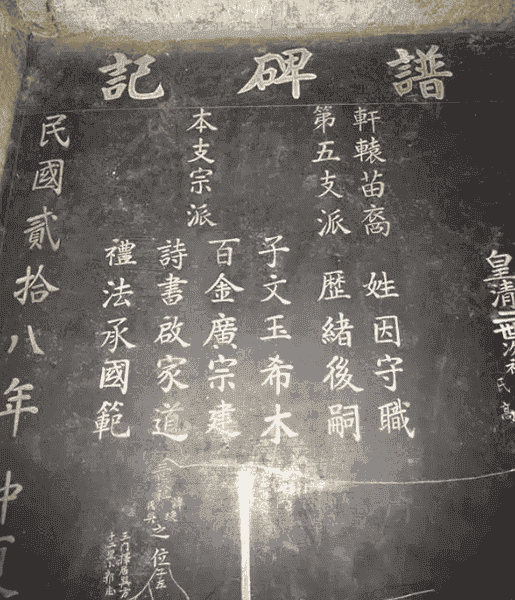 譜碑記
皇清二世
軒轅苗裔 姓因守職
第五支派 歷緒後嗣
子文玉希木
本支宗派 百金廣宗建
詩書啟家道
禮法承國範
民國貳拾八年仲夏
之位